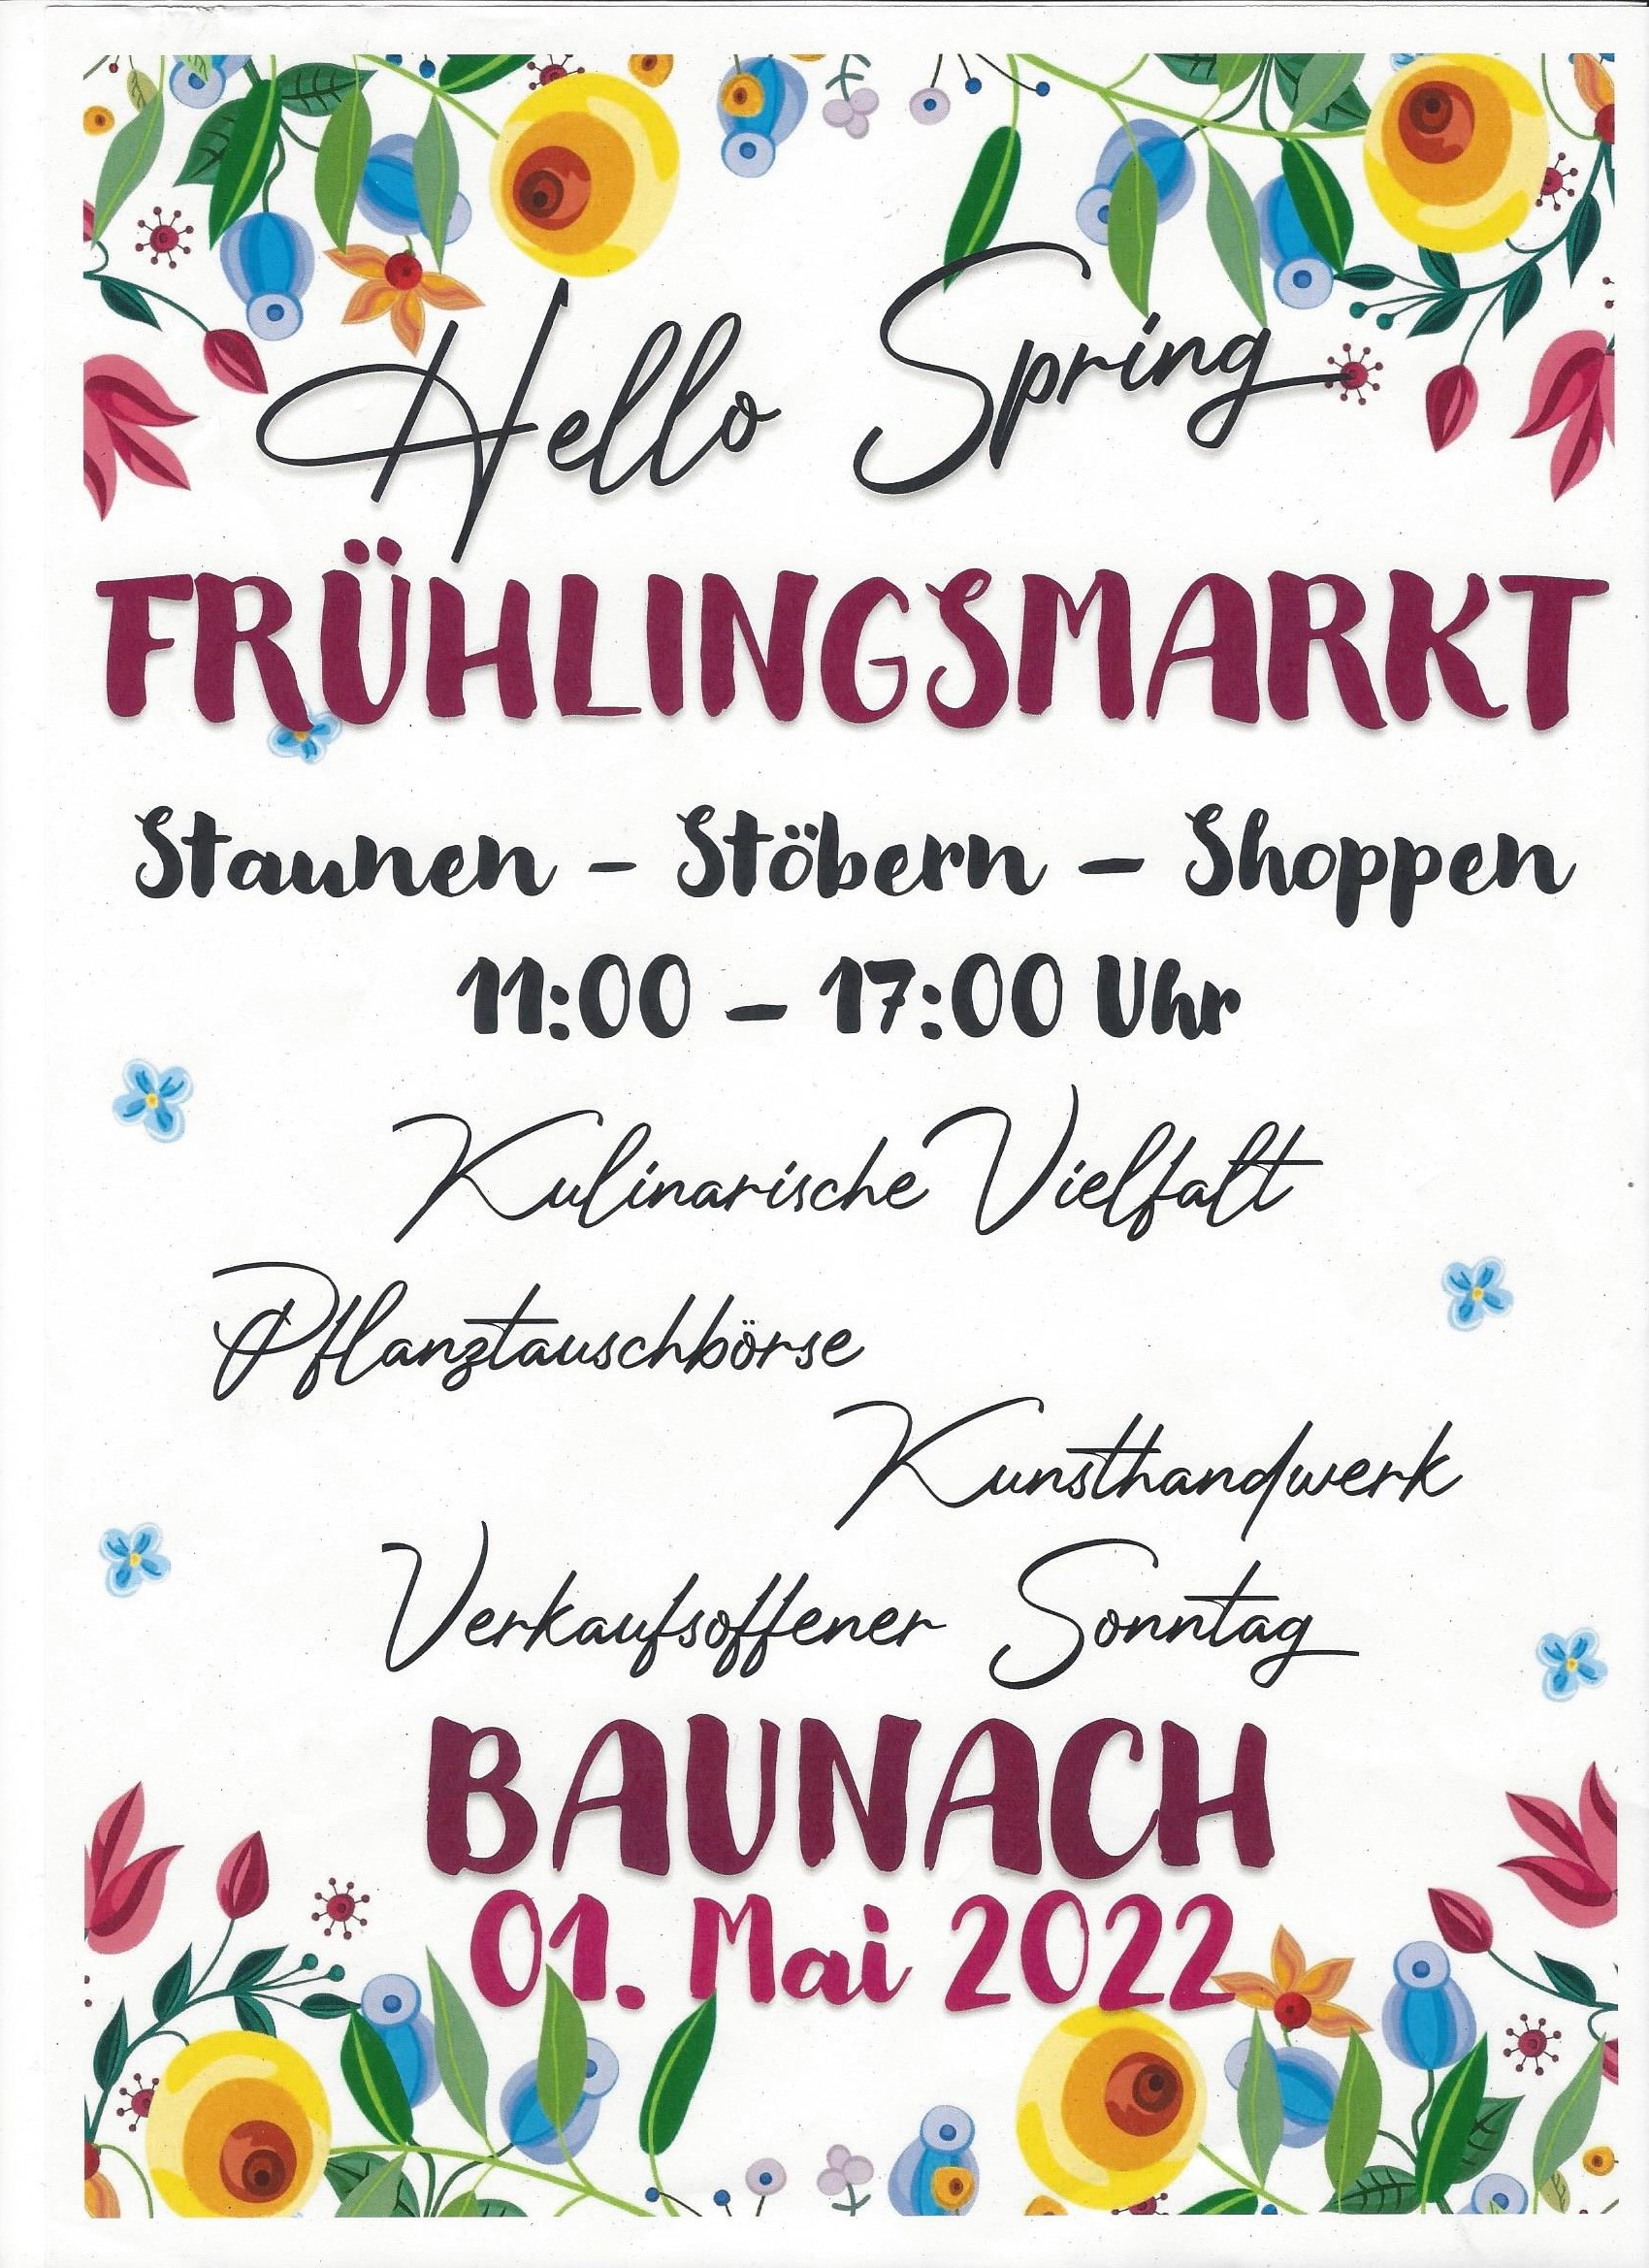 Hello Spring
FRÜHLINGSMARKT
Staunen - Stöbern - Shoppen
11:00 - 17:00 Uhr
Kulinarische Vielfalt
Pflanztauschbörse
Kunsthandwerk
Verkaufsoffener Sonntag
BAUNACH
01. Mai 2022